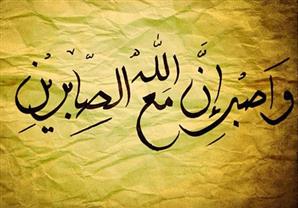 وَاصْبِر إِنَّ مَعَ اللّٰه الصَّابِرِينِ